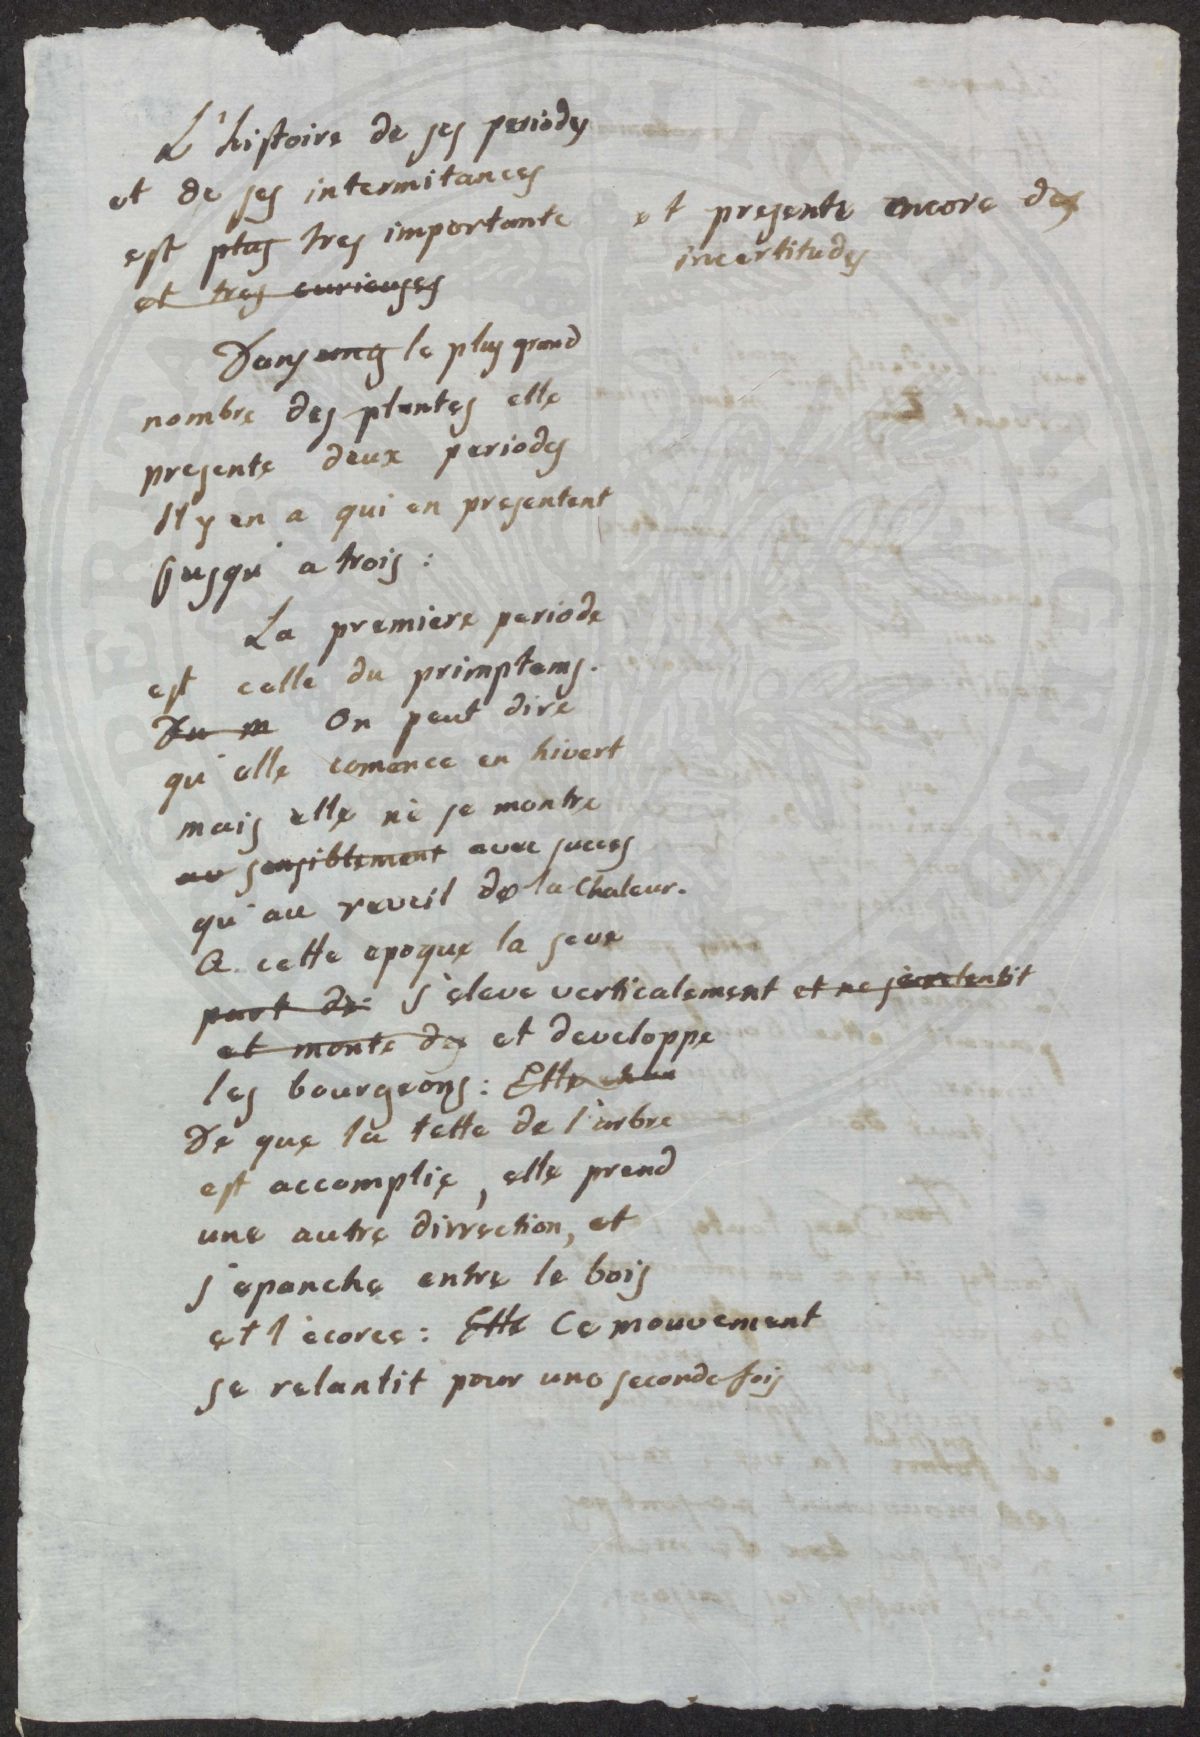 L'histoire de ses periodes
et de ses intermitances
est plus tres importante
et tres curieuses
et presente encore des
incertitudes
Dans ung le plus grand
nombre des plantes elle
presente deux periodes
Il y en a qui en presentent
jusqu'a trois :
La premiere periode
est celle du primptems.
Du m On peut dire
qu'elle comence en hivert
mais elle ne se montre
av sensiblement avec succes
qu'au reveil de la Chaleur.
A cette epoque la seve
part de s'eleve verticalement et ne se relentit
et monte des et developpe
les bourgeons : Elle
De que la tette de l'arbre
est accomplie, elle prend
une autre dirrection, et
s'epanche entre le bois
et l'ecorce : Elle Ce mouvement
se relantit pour une seconde fois